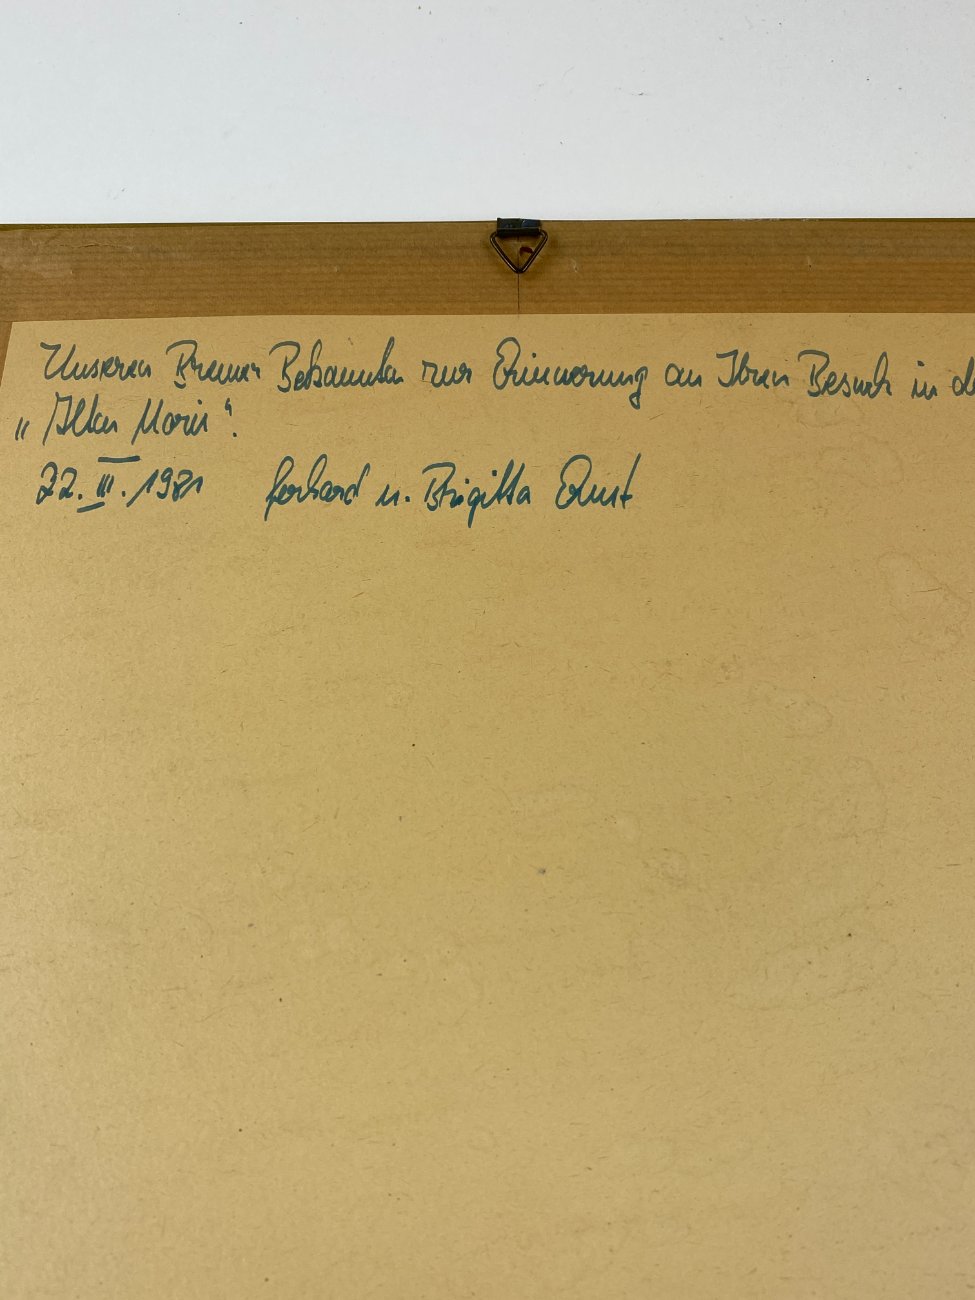 Unseren Bremer Bekannten zur Erinnerung an Ihren Besuch in de
„Alten Marie".
22. III. 1981 Gerhard u. Brigitta Ernst